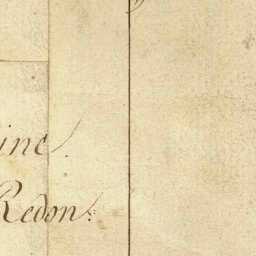 ine
Redon